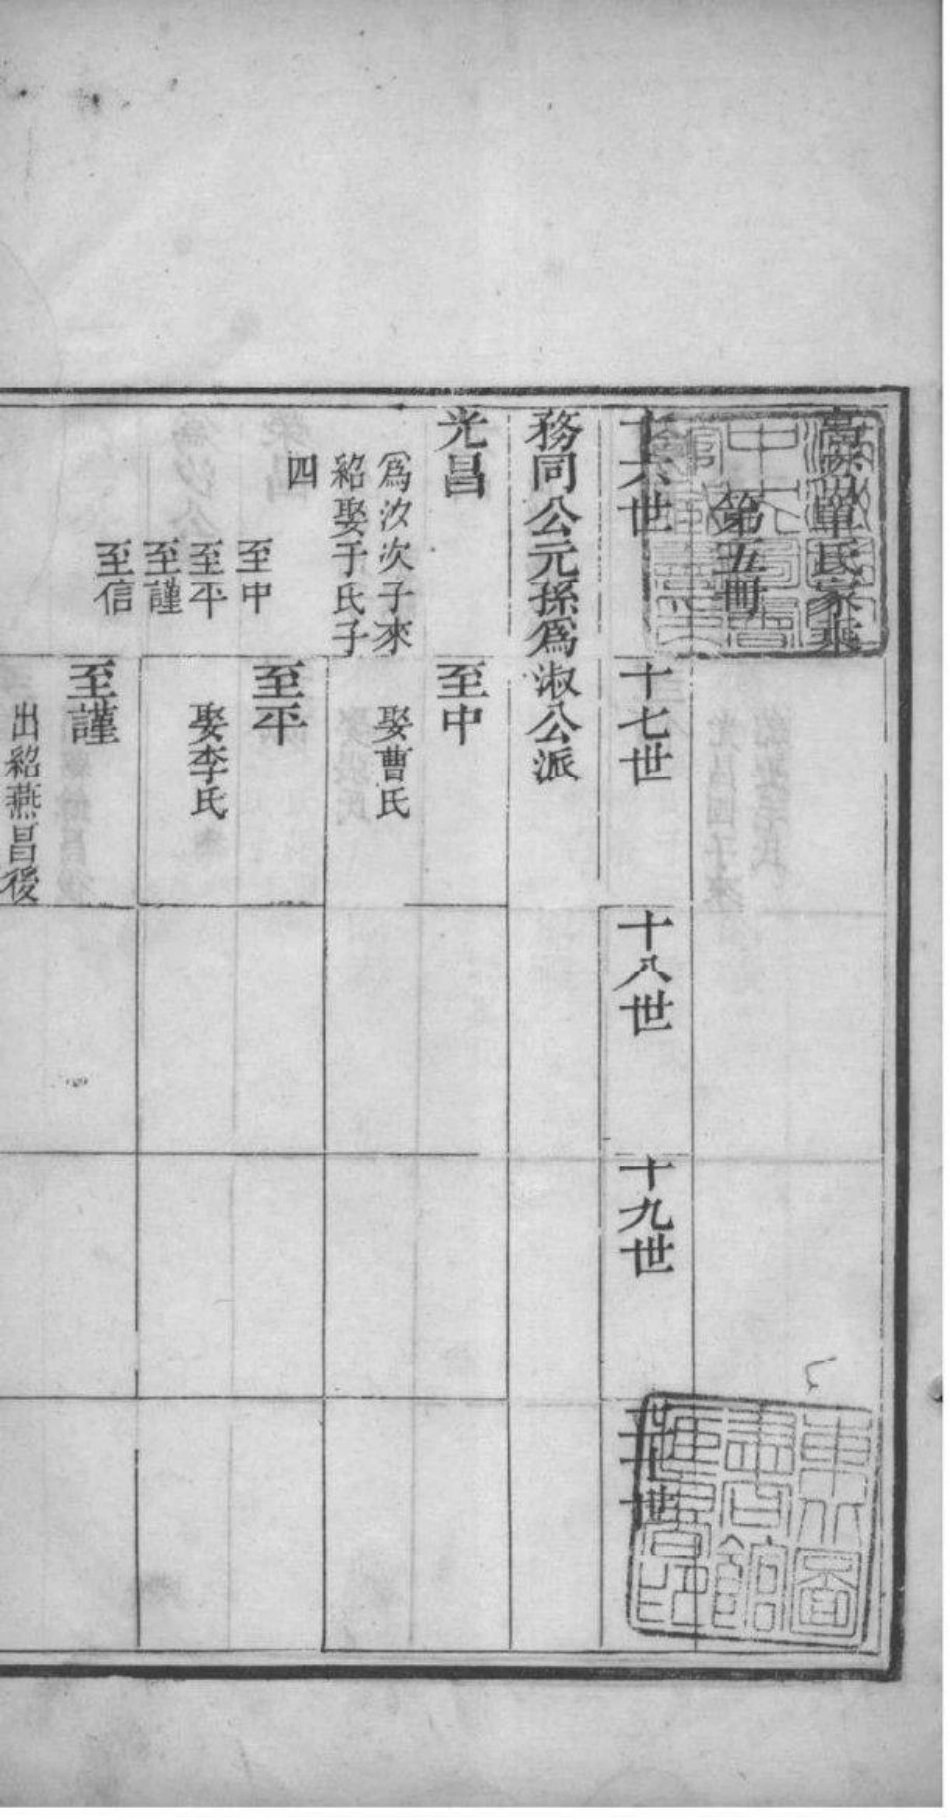 高密單氏家乘
第五冊
十六世
十七世
十八世
十九世
二十世
務同公元孫為淑公派
光昌
為汝次子來
紹娶于氏子
四
至中
至平
至謹
至信
至中
娶曹氏
至平
娶李氏
至謹
出紹燕昌後
東北圖
書館